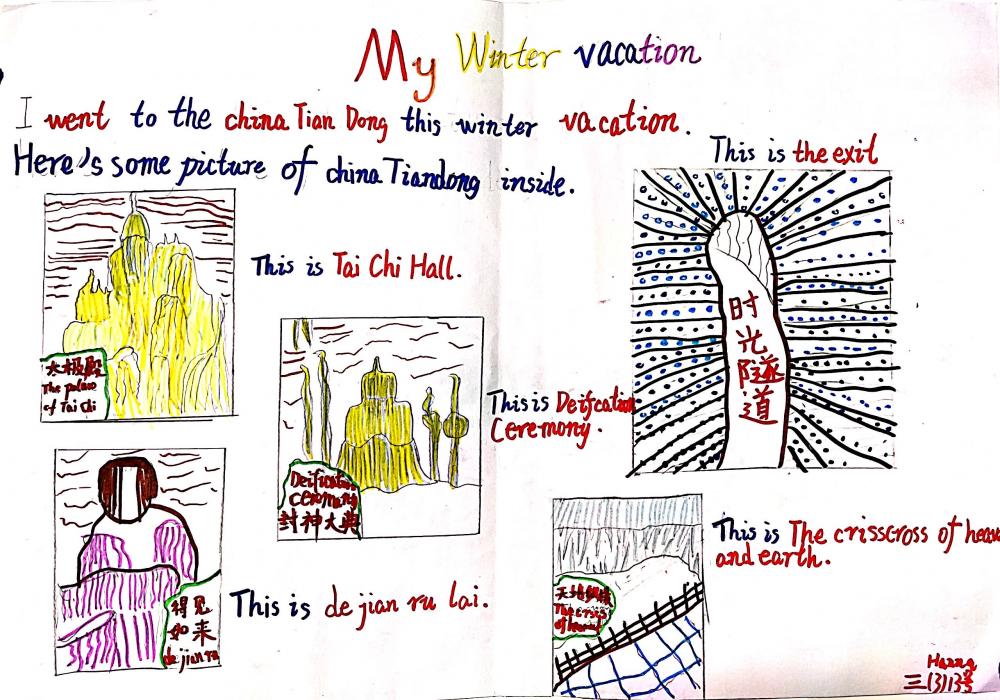 My Winter vacation
I went to the china Tian Dong this winter vacation.
Here's some picture of china Tiandong inside.
This is the exit
时
光
隧
道
This is Tai Chi Hall.
太极殿
The palace
of Tai Chi
This is Deifcation
Ceremony.
Deification
ceremony
封神大典
This is The crisscross of heav
and earth.
天地纵横
The criss
of heaven
This is de jian ru lai.
得见
如来
de jian ru
Hanna
三(3)13号